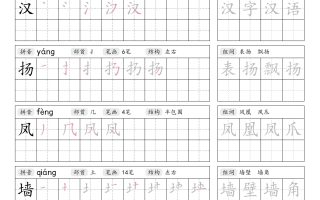 汉 汉 汉字汉语
拼音 yáng 部首 扌 笔画 6笔 结构 左右 组词 表扬 飘扬
扬 扬 扬 扬 表扬飘扬
拼音 fèng 部首 几 笔画 4笔 结构 半包围 组词 凤凰 凤爪
凤 几 凤 凤 凤凰凤爪
拼音 qiáng 部首 土 笔画 14笔 结构 左右 组词 墙壁 墙角
墙 墙壁墙角